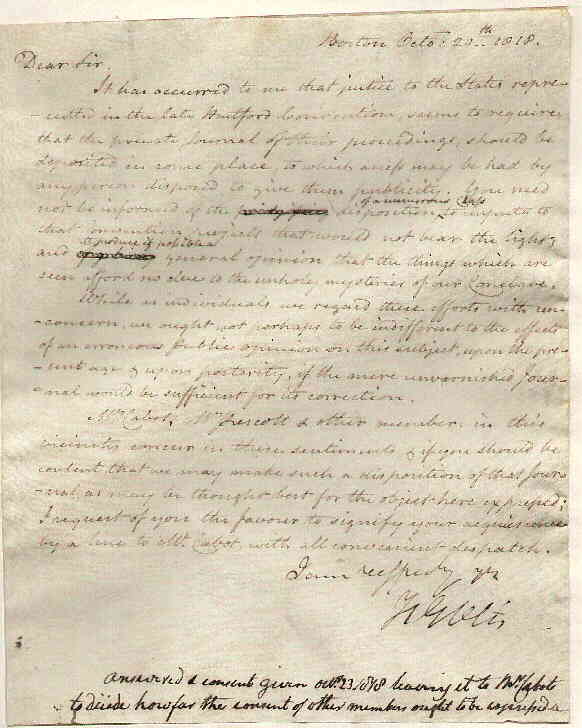 Boston Octo: 20th 1818.
Dear Sir,
It has occurred to me that justice to the States repre-
-sented in the late Hartford Convention, seems to require,
that the private Journal of their proceedings, should be
deposited in some place, to which access may be had by
any person disposed to give them publicity. You need
of a numerous Class
not be informed of the disposition to impute to
that Convention projects that would not bear the light,
to produce if possible a
and general opinion that the things which are
seen afford no clue to the unholy mysteries of our Conclave.
While as individuals we regard these efforts with un-
-concern, we ought not perhaps to be indifferent to the effects
of an erroneous public opinion on this subject, upon the pre-
-sent age & upon posterity, if the mere unvarnished Jour-
-nal would be sufficient for its correction.
Mr Cabot, Mr Prescott & other members in this
vicinity concur in these sentiments & if you should be
content that we may make such a disposition of that Jour-
-nal, as may be thought best for the object here expressed;
I request of you the favour to signify your acquiescence
by a line to Mr. Cabot, with all convenient despatch.
I am respectfy yrs
H G Otis
answered & consent given octr. 23. 1818 leaving it to Mr Cabot
to decide how far the consent of other members ought to be required